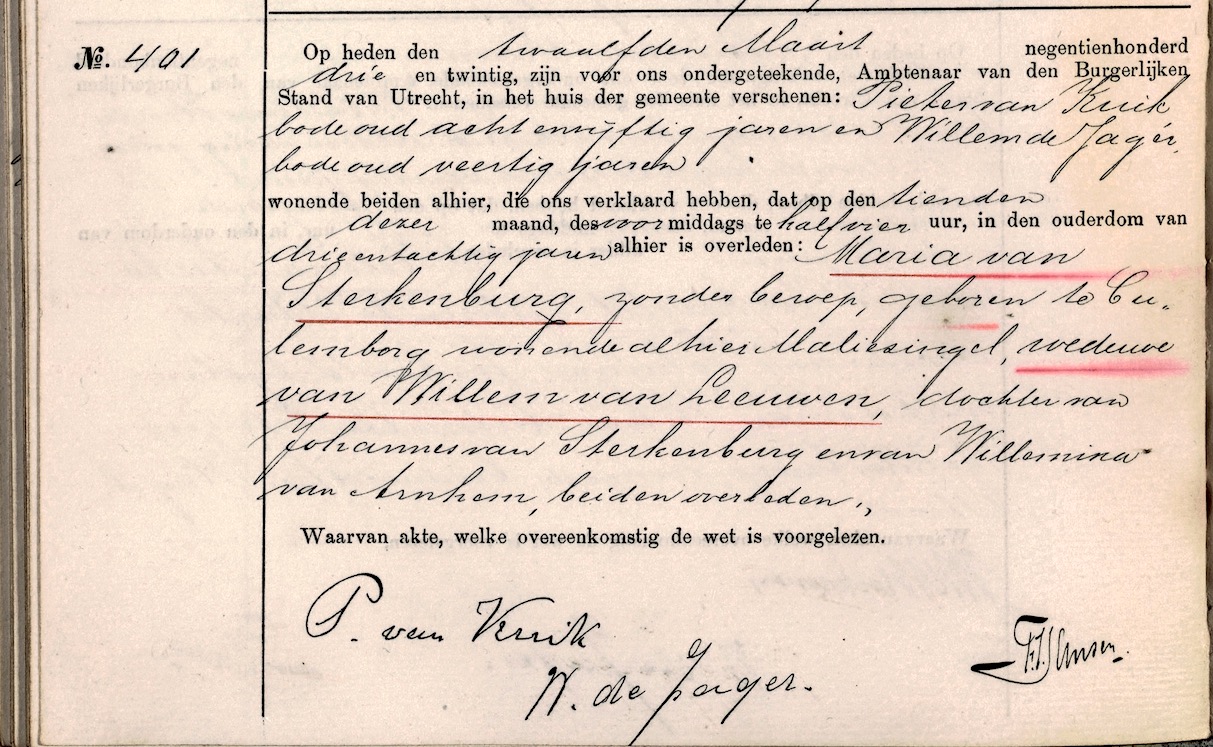 №. 401
Op heden den twaalfden Maart negentienhonderd
drie en twintig, zijn voor ons ondergeteekende, Ambtenaar van den Burgerlijken
Stand van Utrecht, in het huis der gemeente verschenen: Pieter van Kuik
bode oud acht en vijftig jaren en Willem de Jager,
bode oud veertig jaren
wonende beiden alhier, die ons verklaard hebben, dat op den tienden
dezer maand, des voormiddags te half vier uur, in den ouderdom van
drie en tachtig jaren alhier is overleden: Maria van
Sterkenburg, zonder beroep, geboren te Cu„
lemborg wonende alhier Maliesingel, weduwe
van Willem van Leeuwen, dochter van
Johannes van Sterkenburg en van Willemina
van Arnhem, beiden overleden.„
Waarvan akte, welke overeenkomstig de wet is voorgelezen.
P. van Kuik
W. de Jager.